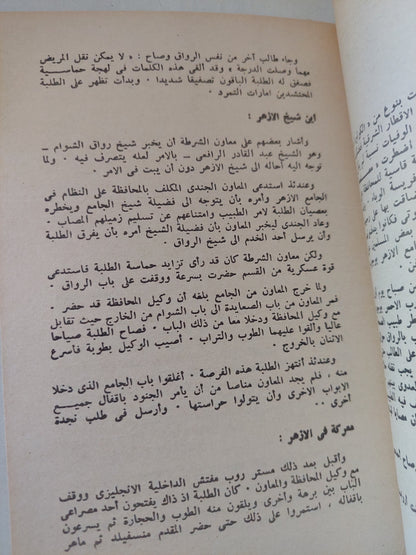 وجاء طالب آخر من نفس الرواق وصاح : « لا يمكن نقل المريض
مهما وصلت الدرجة » وقد ألقى هذه الكلمات فى لهجة حماسية
فصفق له الطلبة الباقون تصفيقا شديدا · وبدأت تظهر على الطلبة
المحتشدين امارات التمرد ·
اين شيخ الازهر :
وأشار بعضهم على معاون الشرطة أن يخبر شيخ رواق الشوام –
وهو الشيخ عبد القادر الرافعى – بالامر لعله يتصرف فيه · ولما
توجه اليه أحاله الى شيخ الازهر دون أن يبت فى الامر ·
وعندئذ استدعى المعاون الجندى المكلف بالمحافظة على النظام فى
الجامع الازهر وأمره بأن يتوجه الى فضيلة شيخ الجامع ويخطره
بعصيان الطلبة لامر الطبيب وامتناعهم عن تسليم زميلهم المصاب ·
وعاد الجندى ليخبر المعاون بأن فضيلة الشيخ أمره بأن يفرق الطلبة
وأن يرسل أحد الخدم الى شيخ الرواق ·
ولكن معاون الشرطة كان قد رأى تزايد حماسة الطلبة فاستدعى
قوة عسكرية من القسم حضرت بسرعة ووقفت على باب الرواق ·
ولما خرج المعاون من الجامع بلغه أن وكيل المحافظة قد حضر ·
فمر المعاون من باب الصعايدة الى باب الشوام من الخارج حيث تقابل
مع وكيل المحافظة ودخلا معا من ذلك الباب · فصاح الطلبة صياحا
عاليا وألقوا عليهما الطوب والتراب · أصيب الوكيل بطوبة فأسرع
الاثنان بالخروج ·
وعندئذ أنتهز الطلبة هذه الفرصة · أغلقوا باب الجامع الذى دخلا
منه ، فلم يجد المعاون مناصا من أن يأمر الجنود باقفال جميع
الابواب الاخرى وأن يتولوا حراستها · وأرسل فى طلب نجدة
أخرى ··
معركة فى الازهر :
وأقبل بعد ذلك مستر روب مفتش الداخلية الانجليزى ووقف
مع وكيل المحافظة والمعاون · كان الطلبة اذ ذاك يفتحون أحد مصراعى
الباب بين برهة وأخرى ويلقون منه الطوب والحجارة ثم يسرعون
باقفاله ، استمروا على ذلك حتى حضر المقدم منسفيلد ثم ماهر